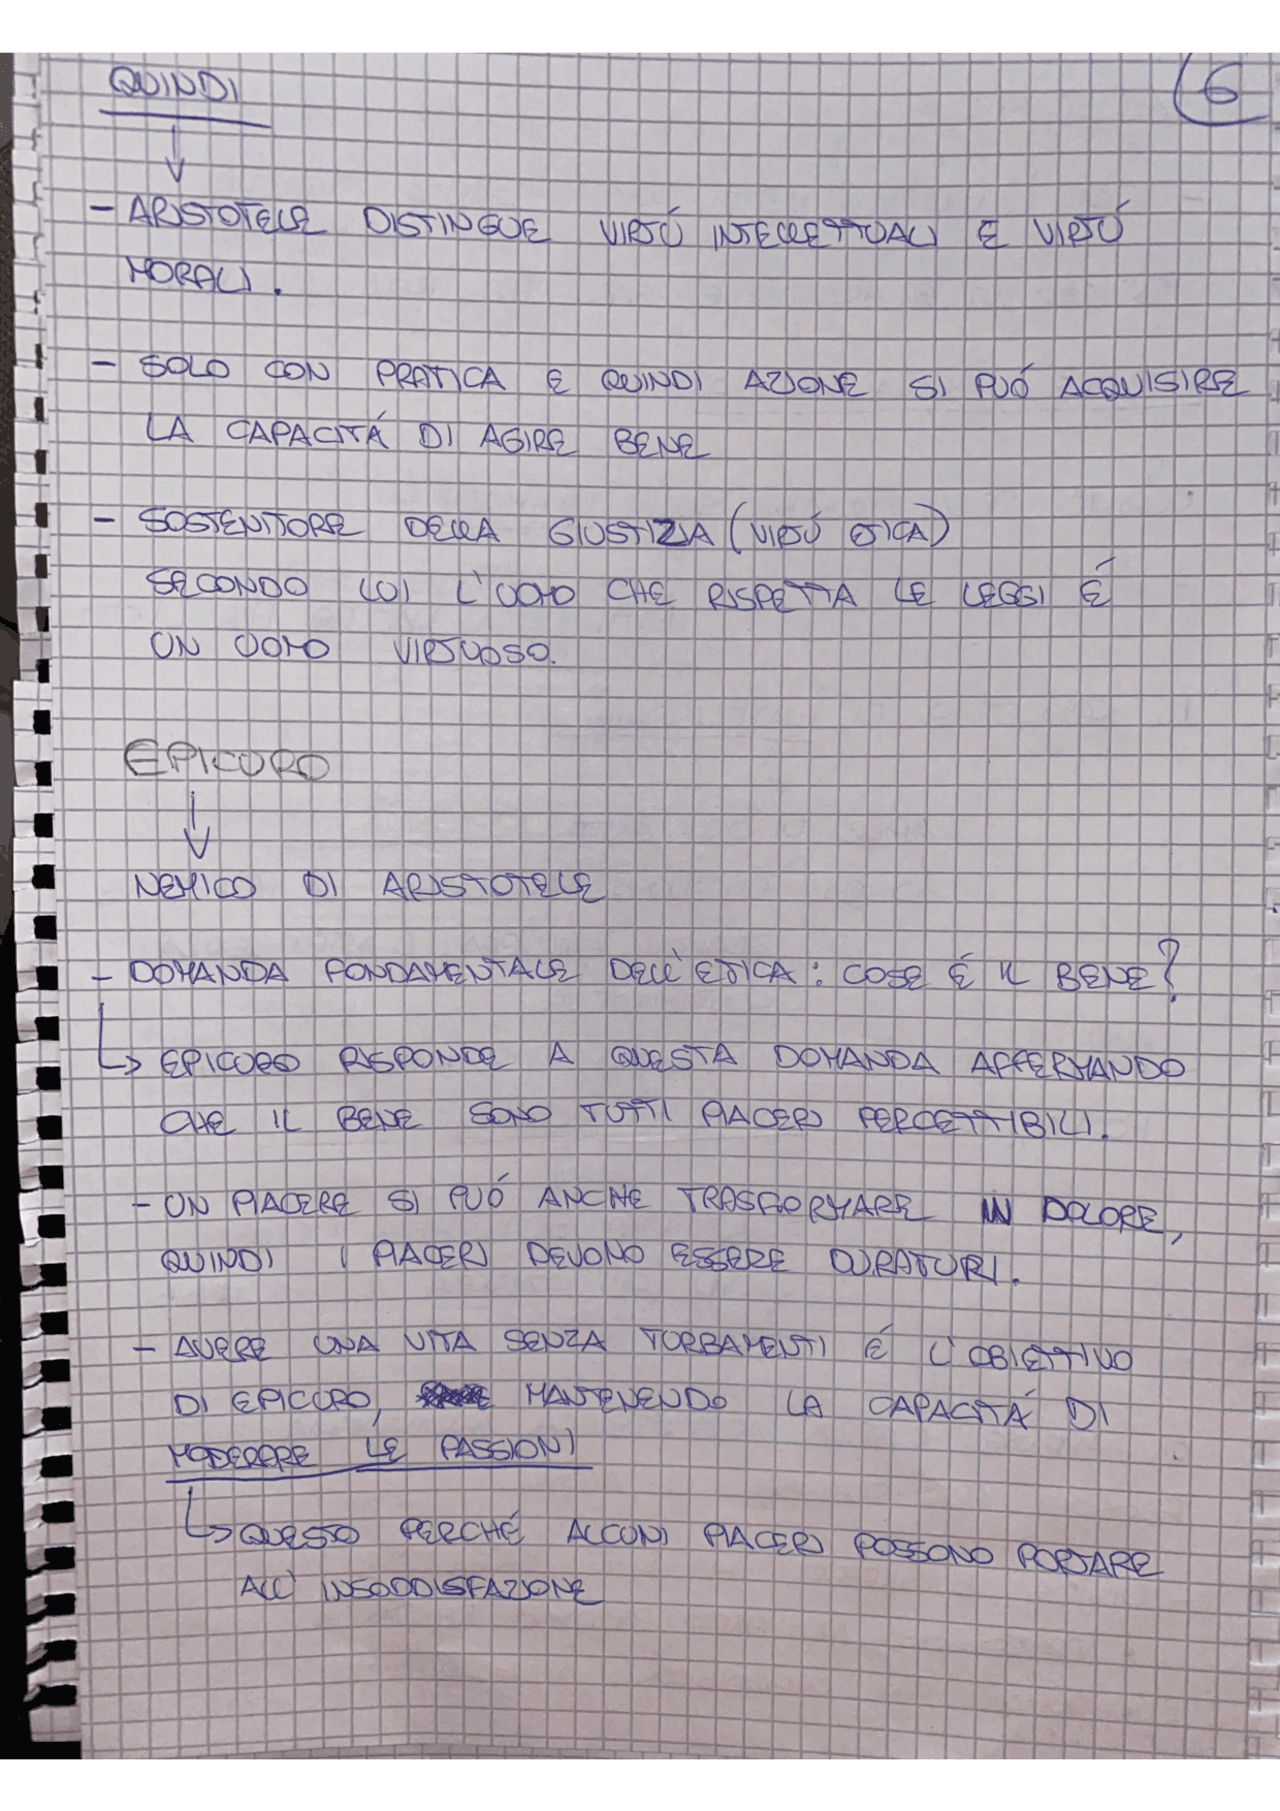 QUINDI
6
↓
- ARISTOTELE DISTINGUE VIRTÚ INTELLETTUALI E VIRTÚ
MORALI.
- SOLO CON PRATICA E QUINDI AZIONE SI PUÓ ACQUISIRE
LA CAPACITÁ DI AGIRE BENE
- SOSTENITORE DELLA GIUSTIZIA (VIRTÚ ETICA)
SECONDO LUI L'UOMO CHE RISPETTA LE LEGGI É
UN UOMO VIRTUOSO.
EPICURO
↓
NEMICO DI ARISTOTELE
- DOMANDA FONDAMENTALE DELL'ETICA: COSE É IL BENE?
↳ EPICURO RISPONDE A QUESTA DOMANDA AFFERMANDO
CHE IL BENE SONO TUTTI PIACERI PERCETTIBILI.
- UN PIACERE SI PUÓ ANCHE TRASFORMARE IN DOLORE,
QUINDI I PIACERI DEVONO ESSERE DURATURI.
- AVERE UNA VITA SENZA TURBAMENTI É L'OBIETTIVO
DI EPICURO, MANTENENDO LA CAPACITÁ DI
MODERARE LE PASSIONI
↳ QUESTO PERCHÉ ALCUNI PIACERI POSSONO PORTARE
ALL'INSODDISFAZIONE